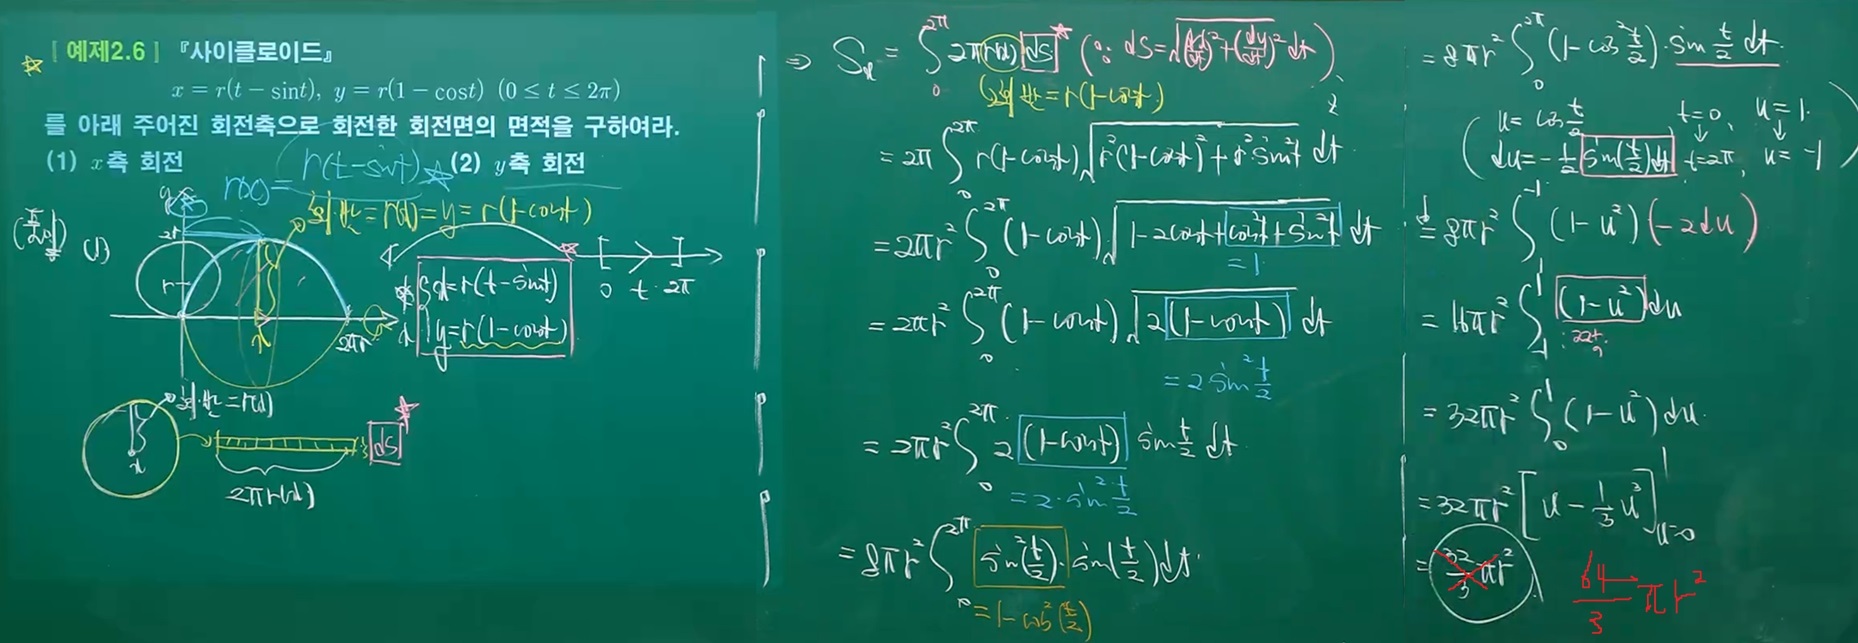 [ 예제2.6 ] 『사이클로이드』
x = r(t − sint), y = r(1 − cost) (0 ≤ t ≤ 2π)
를 아래 주어진 회전축으로 회전한 회전면의 면적을 구하여라.
(1) x축 회전 (2) y축 회전
r(x) = r(t-sint)
회·반 = r(x) = y = r(1-cost)
(풀이) (1)
2r
r
x
2πr
x = r(t-sint)
y = r(1-cost)
0 t 2π
회·반 = r(x)
x
ds
2πr(x)
⇒ Sx = ∫_0^{2π} 2πr(x) ds (∵ ds = √((dx/dt)²+(dy/dt)²) dt)
(회·반 = r(1-cost))
= 2π ∫_0^{2π} r(1-cost) √(r²(1-cost)²+r²sin²t) dt
= 2πr² ∫_0^{2π} (1-cost) √(1-2cost+cos²t+sin²t) dt
= 1
= 2πr² ∫_0^{2π} (1-cost) √(2(1-cost)) dt
= 2sin² t/2
= 2πr² ∫_0^{2π} 2(1-cost) sin t/2 dt
= 2·sin² t/2
= 8πr² ∫_0^{2π} sin²(t/2)·sin(t/2) dt
= 1-cos²(t/2)
= 8πr² ∫_0^{2π} (1-cos² t/2)·sin t/2 dt
u = cos t/2 t=0, u=1
du = -1/2 sin(t/2) dt t=2π, u=-1
= 8πr² ∫_1^{-1} (1-u²)(-2du)
= 16πr² ∫_{-1}^{1} (1-u²) du
= 32πr² ∫_0^1 (1-u²) du
= 32πr² [u - 1/3 u³]_{u=0}^{1}
= 32/3 πr²
64/3 πr²